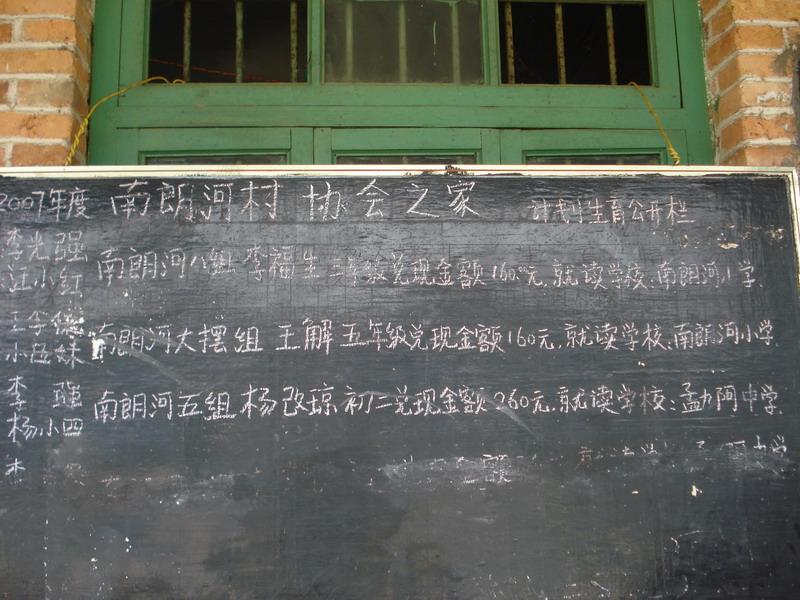 2007年度 南朗河村 协会之家 计划生育公开栏
李光强
汪小红
南朗河八组 李福生 三年级兑现金额160元.就读学校.南朗河小学.
王李德
小伍妹
南朗河大摆组 王解 五年级兑现金额160元.就读学校.南朗河小学.
李强
杨小四
南朗河五组 杨改琼 初二兑现金额260元.就读学校.孟力阿中学.
李
额